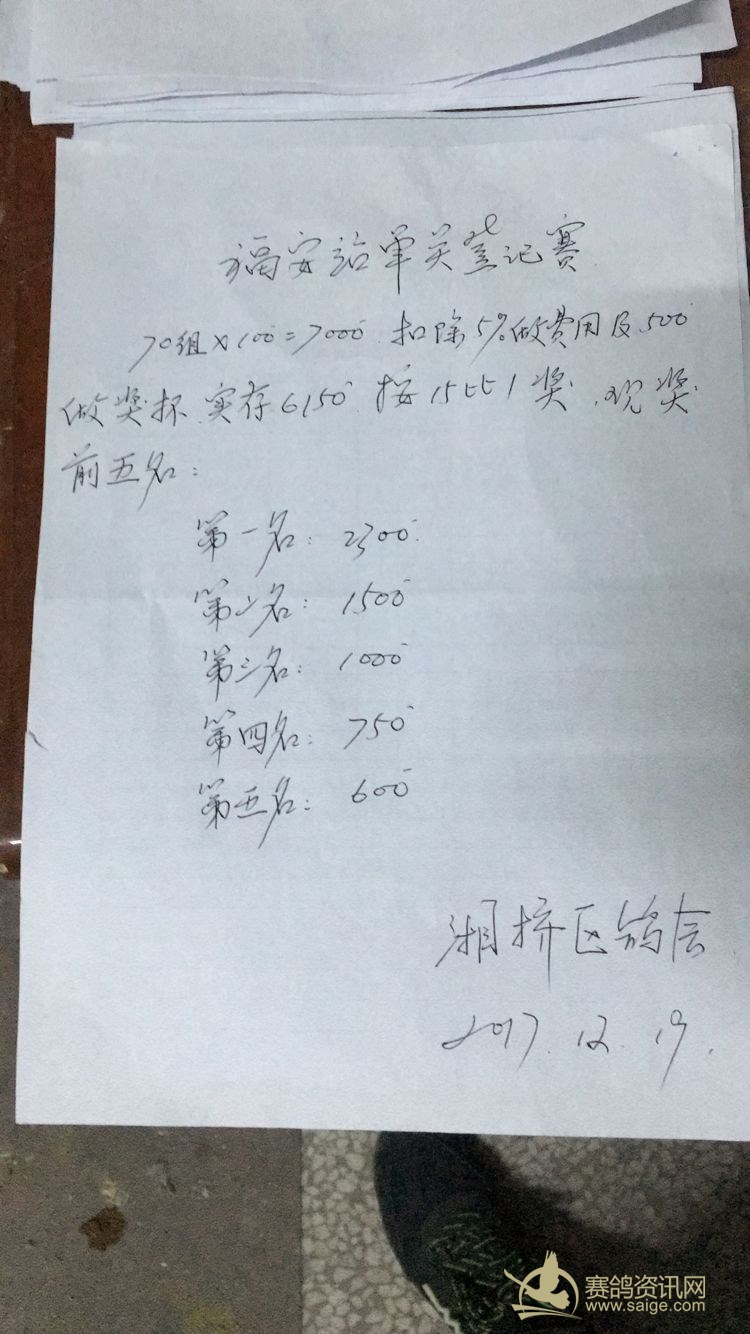 福安站单关登记赛
70组×100=7000 扣除5%做费用及500
做奖杯.实存6150 按15比1奖.现奖
前五名：
第一名：2300
第二名：1500
第三名：1000
第四名：750
第五名：600
湘桥区鸽会
2017.12.19.
赛鸽资讯网
www.saige.com